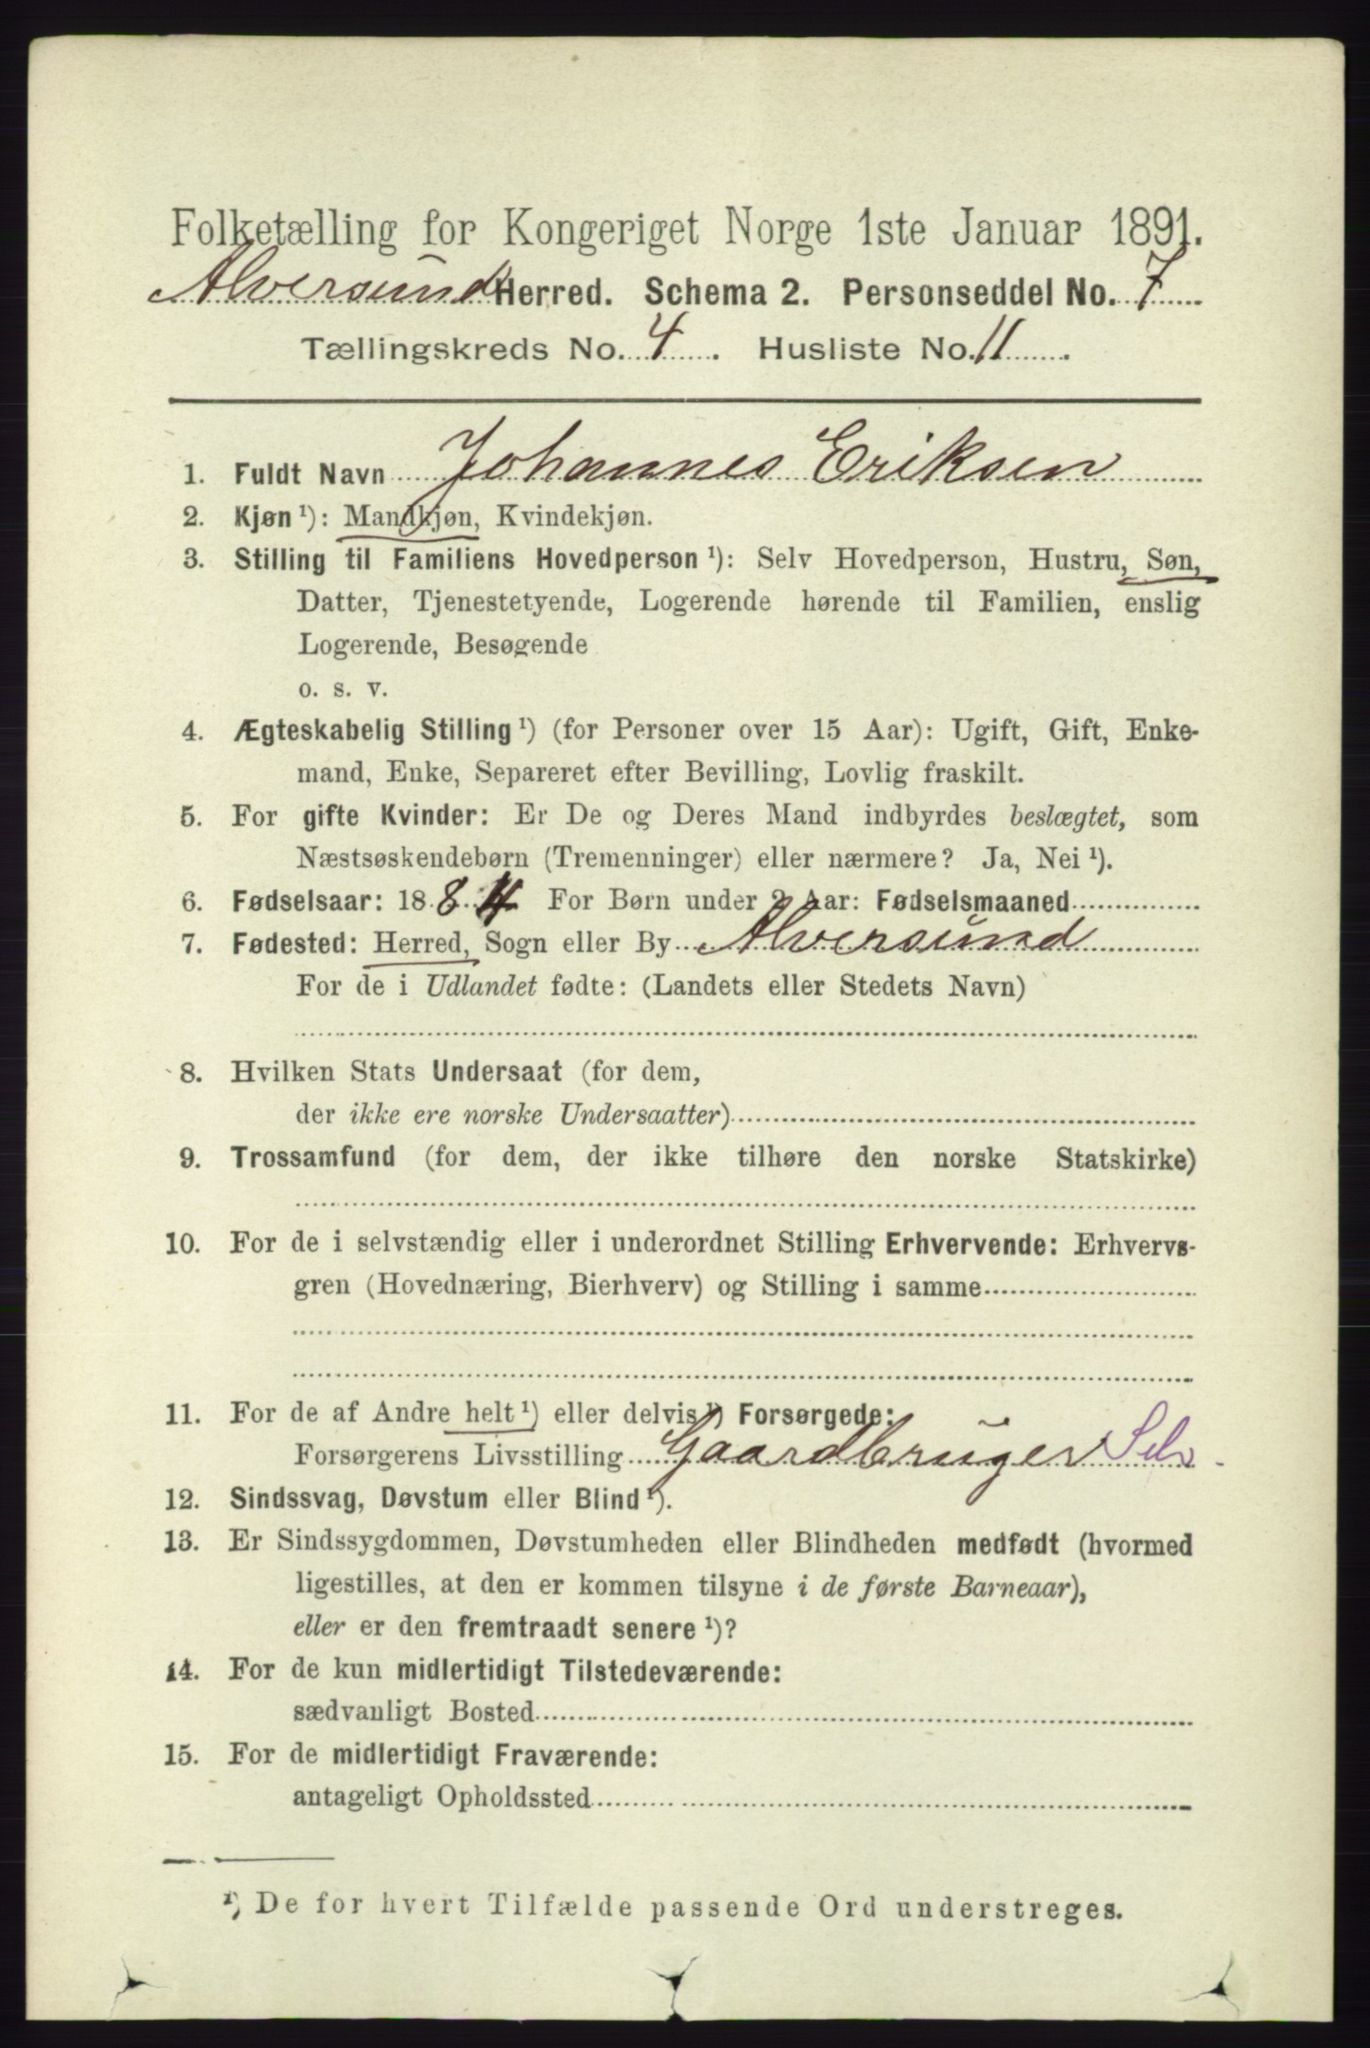 Folketælling for Kongeriget Norge 1ste Januar 1891.
Alversund Herred. Schema 2. Personseddel No. 7
Tællingskreds No. 4. Husliste No. 11.
1. Fuldt Navn Johannes Eriksen
2. Kjøn ¹): Mandkjøn, Kvindekjøn.
3. Stilling til Familiens Hovedperson ¹): Selv Hovedperson, Hustru, Søn,
Datter, Tjenestetyende, Logerende hørende til Familien, enslig
Logerende, Besøgende
o. s. v.
4. Ægteskabelig Stilling ¹) (for Personer over 15 Aar): Ugift, Gift, Enke-
mand, Enke, Separeret efter Bevilling, Lovlig fraskilt.
5. For gifte Kvinder: Er De og Deres Mand indbyrdes beslægtet, som
Næstsøskendebørn (Tremenninger) eller nærmere? Ja, Nei ¹).
6. Fødselsaar: 1884 For Børn under 2 Aar: Fødselsmaaned
7. Fødested: Herred, Sogn eller By Alversund
For de i Udlandet fødte: (Landets eller Stedets Navn)
8. Hvilken Stats Undersaat (for dem,
der ikke ere norske Undersaatter)
9. Trossamfund (for dem, der ikke tilhøre den norske Statskirke)
10. For de i selvstændig eller i underordnet Stilling Erhvervende: Erhvervs-
gren (Hovednæring, Bierhverv) og Stilling i samme
11. For de af Andre helt ¹) eller delvis ¹) Forsørgede:
Forsørgerens Livsstilling Gaardbruger Selv
12. Sindssvag, Døvstum eller Blind ¹).
13. Er Sindssygdommen, Døvstumheden eller Blindheden medfødt (hvormed
ligestilles, at den er kommen tilsyne i de første Barneaar),
eller er den fremtraadt senere ¹)?
14. For de kun midlertidigt Tilstedeværende:
sædvanligt Bosted
15. For de midlertidigt Fraværende:
antageligt Opholdssted
¹) De for hvert Tilfælde passende Ord understreges.